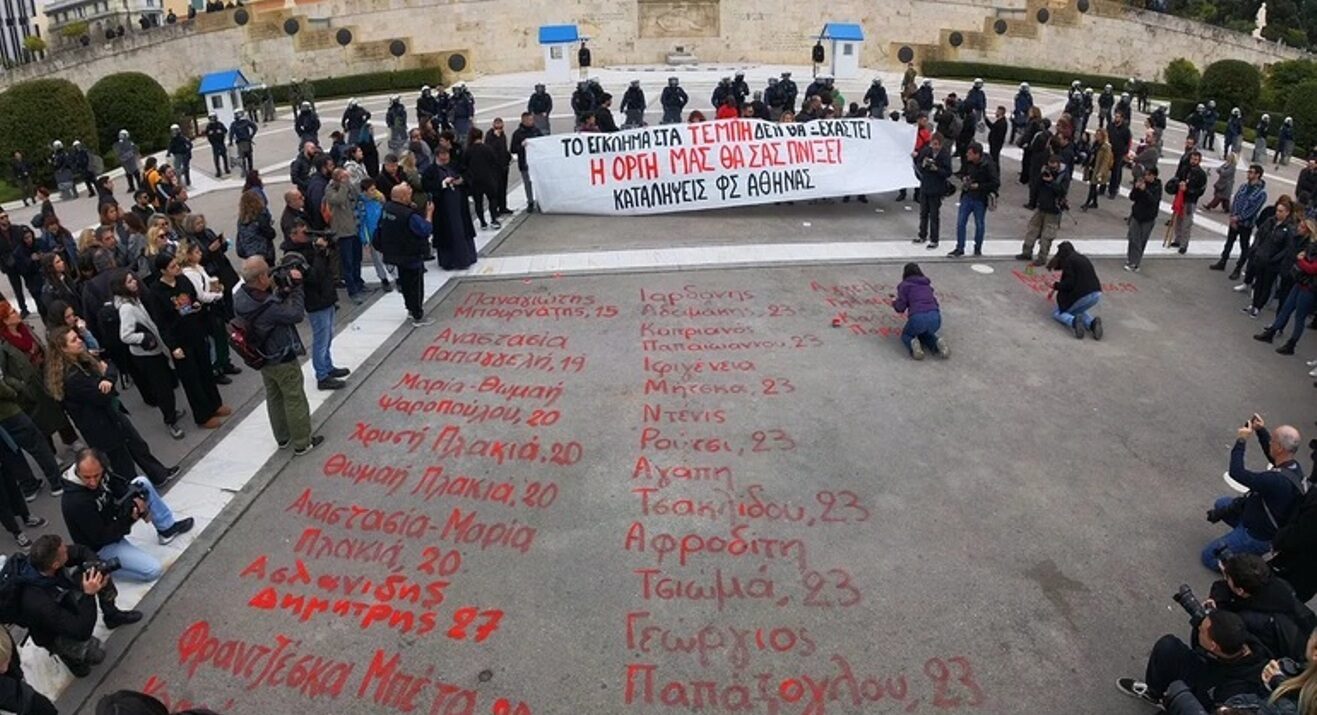 ΤΟ ΕΓΚΛΗΜΑ ΣΤΑ ΤΕΜΠΗ ΔΕΝ ΘΑ ΞΕΧΑΣΤΕΙ
Η ΟΡΓΗ ΜΑΣ ΘΑ ΣΑΣ ΠΝΙΞΕΙ
ΚΑΤΑΛΗΨΕΙΣ ΦΣ ΑΘΗΝΑΣ
Παναγιώτης
Μπουρνάζης, 15
Αναστασία
Παπαγγελή, 19
Μαρία-Θωμαή
Ψαροπούλου, 20
Χρυσή Πλακιά, 20
Θωμαή Πλακιά, 20
Αναστασία-Μαρία
Πλακιά, 20
Ασλανίδης
Δημήτρης 27
Φραντζέσκα Μπέζα
Ιορδάνης
Αδαμάκης, 23
Κυπριανός
Παπαϊωάννου, 23
Ιφιγένεια
Μήτσκα, 23
Ντένις
Ρούτσι, 23
Αγάπη
Τσακλίδου, 23
Αφροδίτη
Τσιωμά, 23
Γεώργιος
Παπάζογλου, 23